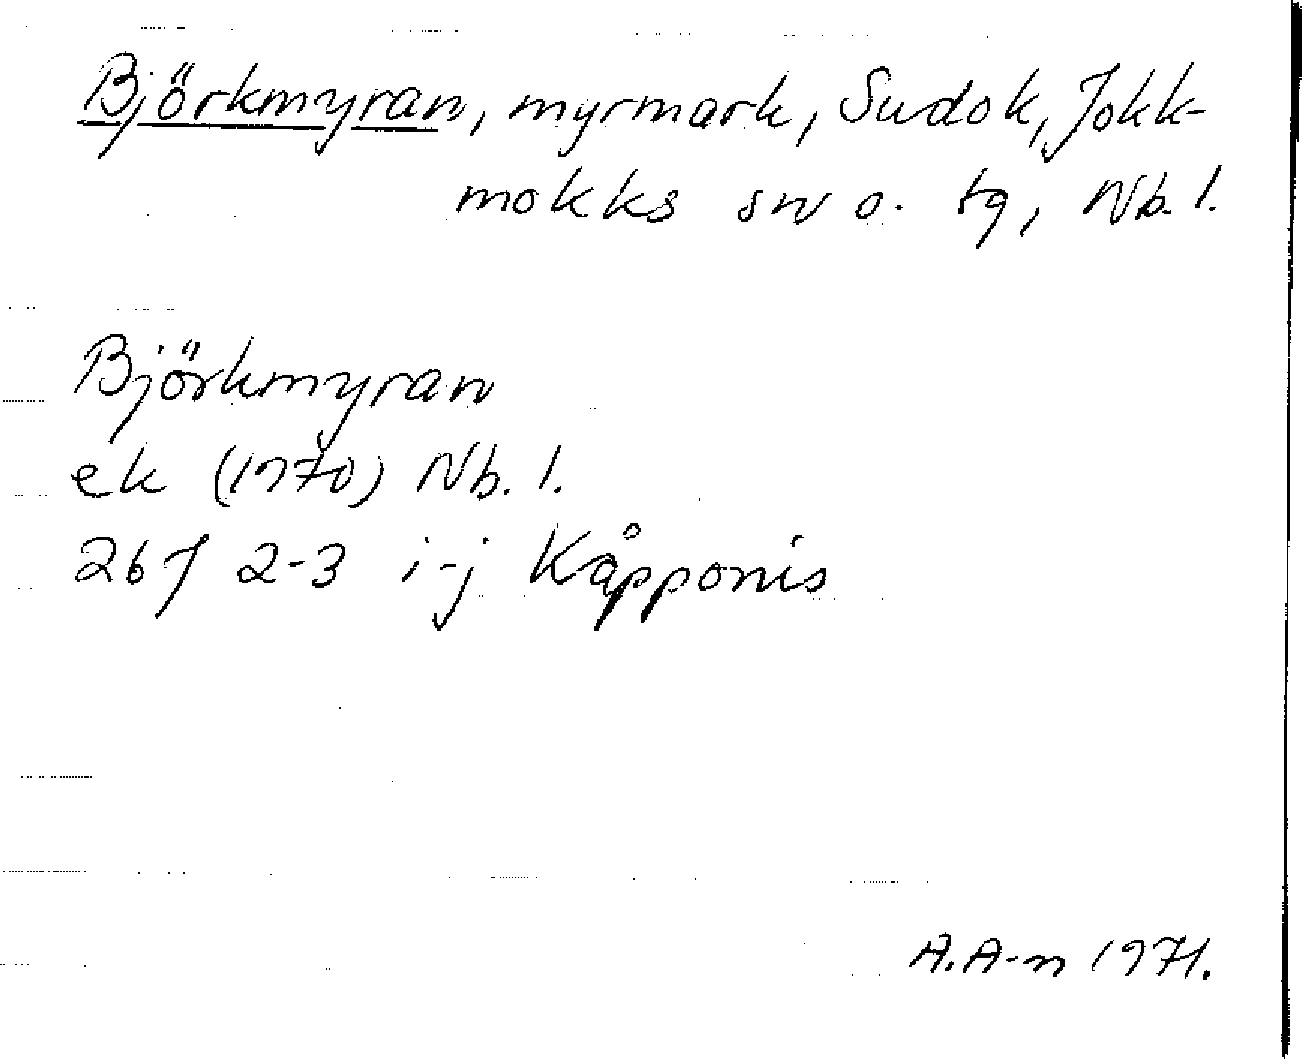 Björkmyran, myrmark, Sudok, Jokk-
mokks sn o. tg, Nb. l.
Björkmyran
ek (1970) Nb. l.
26J 2-3 i-j Kåpponis
A.A-n 1971.